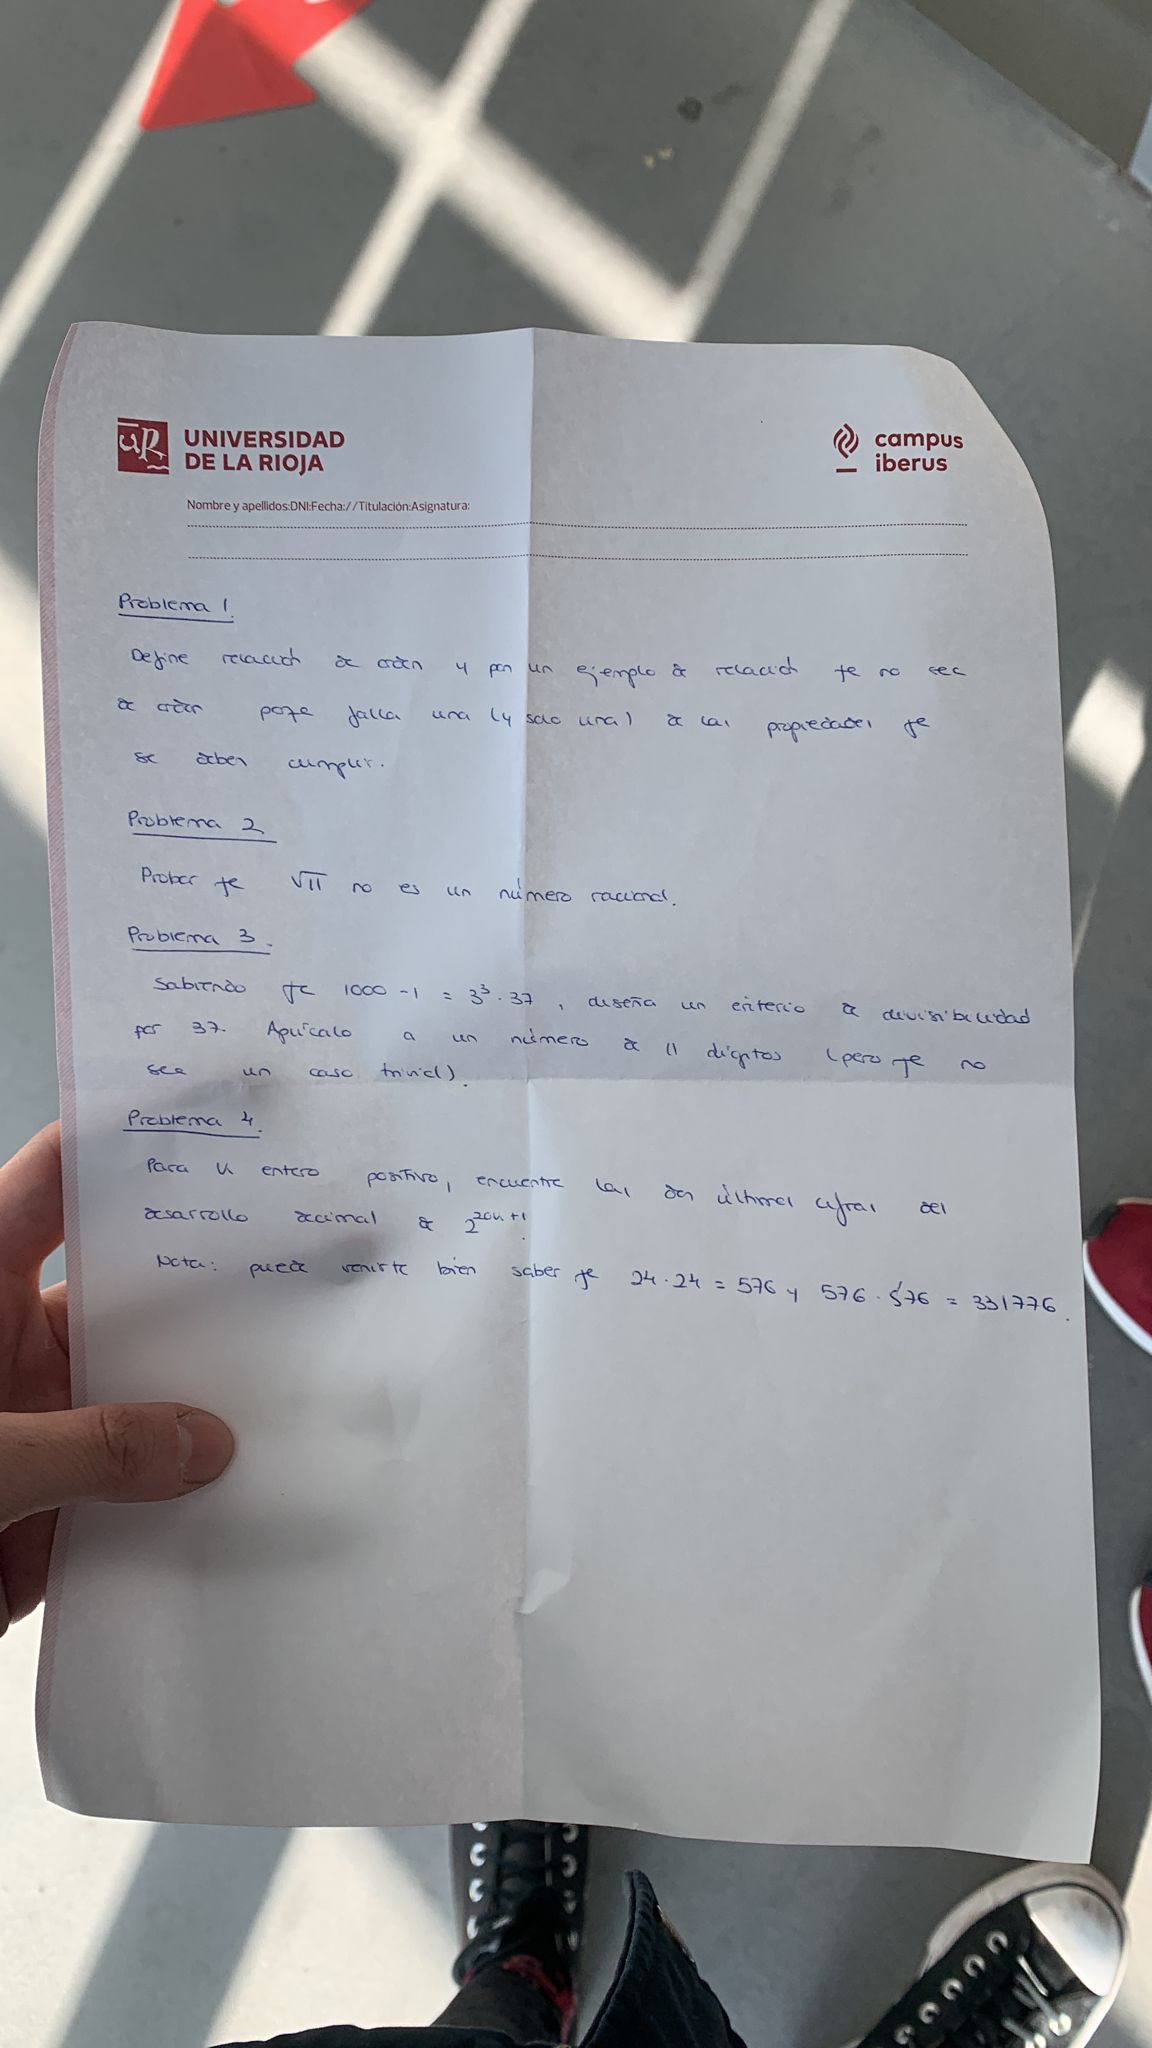 UR
UNIVERSIDAD
DE LA RIOJA
campus
iberus
Nombre y apellidos:DNI:Fecha://Titulación:Asignatura:
Problema 1.
Define relación de orden y pon un ejemplo de relación qe no sea
de orden porqe falla una (y solo una) de las propiedades qe
se deben cumplir.
Problema 2
Probar qe √11 no es un número racional.
Problema 3.
Sabiendo qe 1000 - 1 = 3³ · 37, diseña un criterio de divisibilidad
por 37. Aplícalo a un número de 11 dígitos (pero qe no
sea un caso trivial).
Problema 4.
Para n entero positivo, encuentre las dos últimas cifras del
desarrollo decimal de 2²⁰ⁿ⁺¹.
Nota: puede venirte bien saber qe 24 · 24 = 576 y 576 · 576 = 331776.